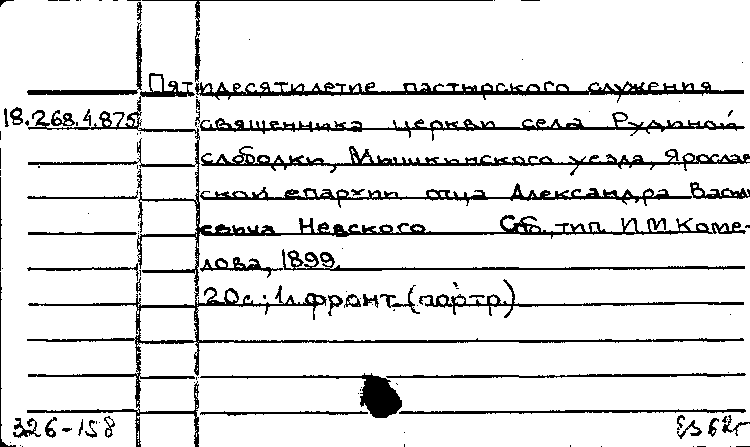 Пятидесятилетие пастырского служения
18.268.4.875 священника церкви села Рудиной
слободки, Мышкинского уезда, Ярослав
ской епархии отца Александра Васи
евича Невского Спб., тип. И.М. Коме-
лова, 1899.
20с.; 1л. фронт. (портр.)
326-158